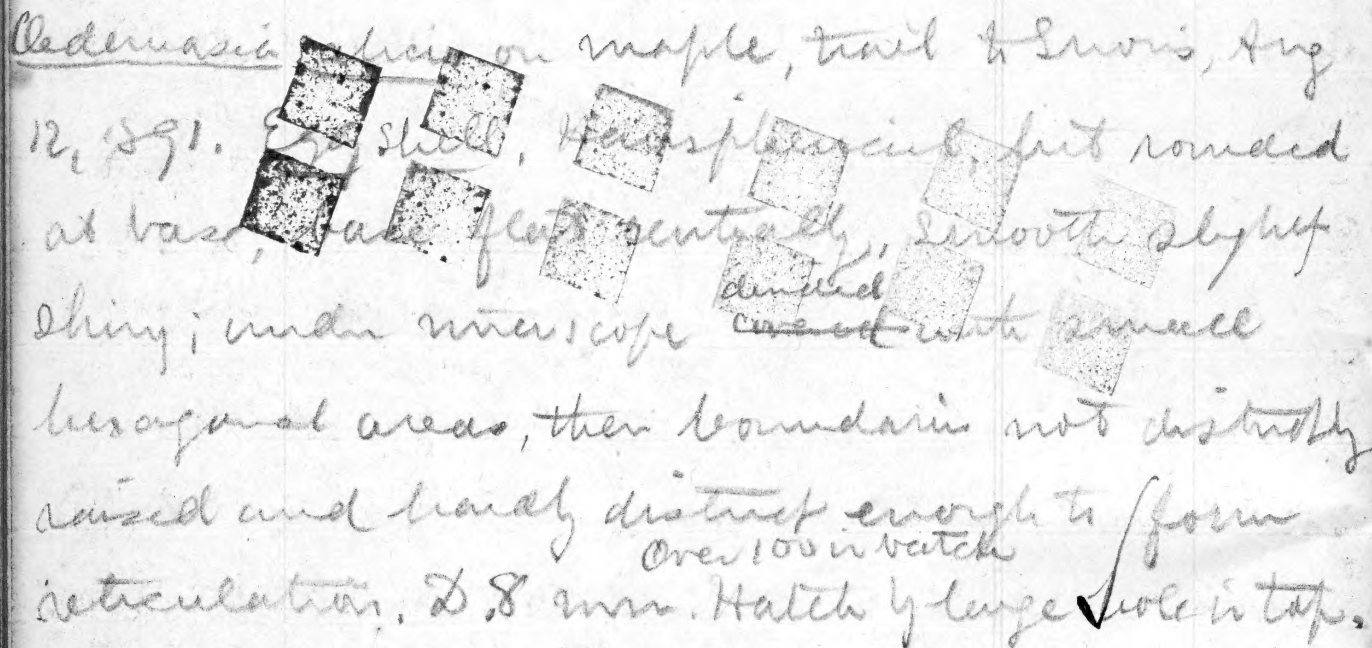 Oedemasia on maple, trail to Snow's, Aug
12, 1891. Egg Shell. Hemispherical but rounded
at base, base flat centrally, smooth slightly
denuded
shiny; under microscope covered with small
hexagonal areas, their boundaries not distinctly
raised and hardly distinct enough to form
Over 100 in batch
reticulation. D .8 mm. Hatch by large hole in top.